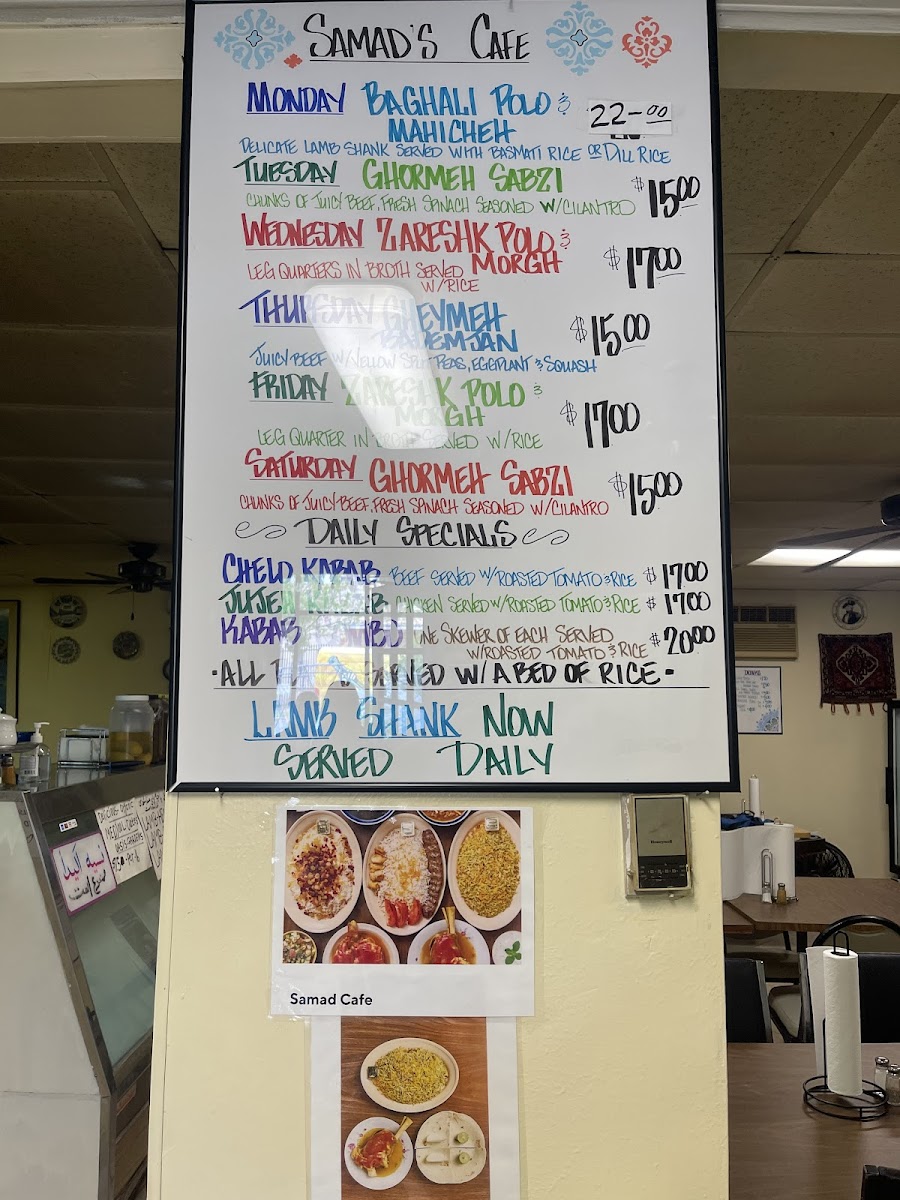 SAMAD'S CAFE
MONDAY BAGHALI POLO &
MAHICHEH
22-00
DELICATE LAMB SHANK SERVED WITH BASMATI RICE OR DILL RICE
TUESDAY GHORMEH SABZI
CHUNKS OF JUICY BEEF, FRESH SPINACH SEASONED W/CILANTRO
$1500
WEDNESDAY ZARESHK POLO &
MORGH
LEG QUARTERS IN BROTH SERVED
W/RICE
$1700
THURSDAY GHEYMEH
BADEMJAN
$1500
JUICY BEEF W/YELLOW SPLIT PEAS, EGGPLANT & SQUASH
FRIDAY ZARESHK POLO &
MORGH
$1700
LEG QUARTER IN BROTH SERVED W/RICE
SATURDAY GHORMEH SABZI
CHUNKS OF JUICY BEEF, FRESH SPINACH SEASONED W/CILANTRO
$1500
DAILY SPECIALS
CHELO KABAB BEEF SERVED W/ROASTED TOMATO & RICE $1700
JUJEH KABAB CHICKEN SERVED W/ROASTED TOMATO & RICE $1700
KABAB ONE SKEWER OF EACH SERVED
W/ROASTED TOMATO & RICE $2000
·ALL SERVED W/ A BED OF RICE·
LAMB SHANK NOW
SERVED DAILY
Honeywell
Samad Cafe